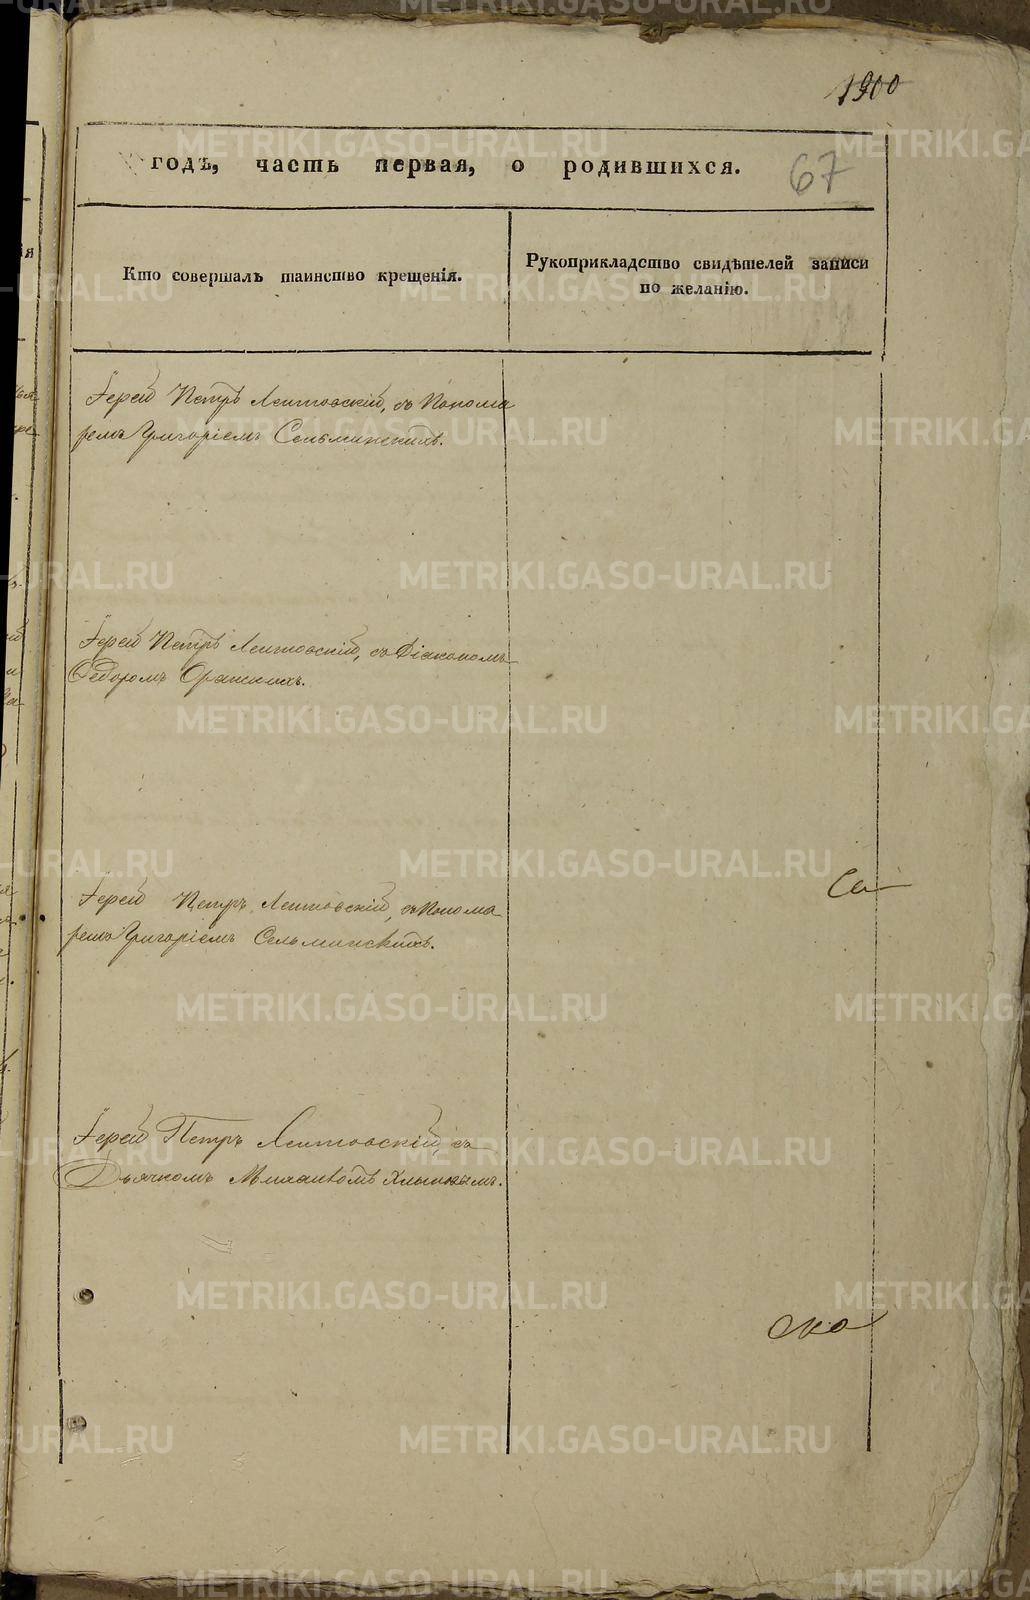 1900
годъ, часть первая, о родившихся.
67
Кто совершалъ таинство крещенія.
Рукоприкладство свидѣтелей записи
по желанію.
Іерей Петръ Лептовскій, съ Понома
ремъ Григоріемъ Сельминскимъ.
Іерей Петръ Лептовскій, съ Діакономъ
Ѳедоромъ
Іерей Петръ Лептовскій, съ Понома
ремъ Григоріемъ Сельминскимъ.
Се
Іерей Петръ Лептовскій, съ
Дьячкомъ Михаиломъ Хлыновымъ.
ско
METRIKI.GASO-URAL.RU